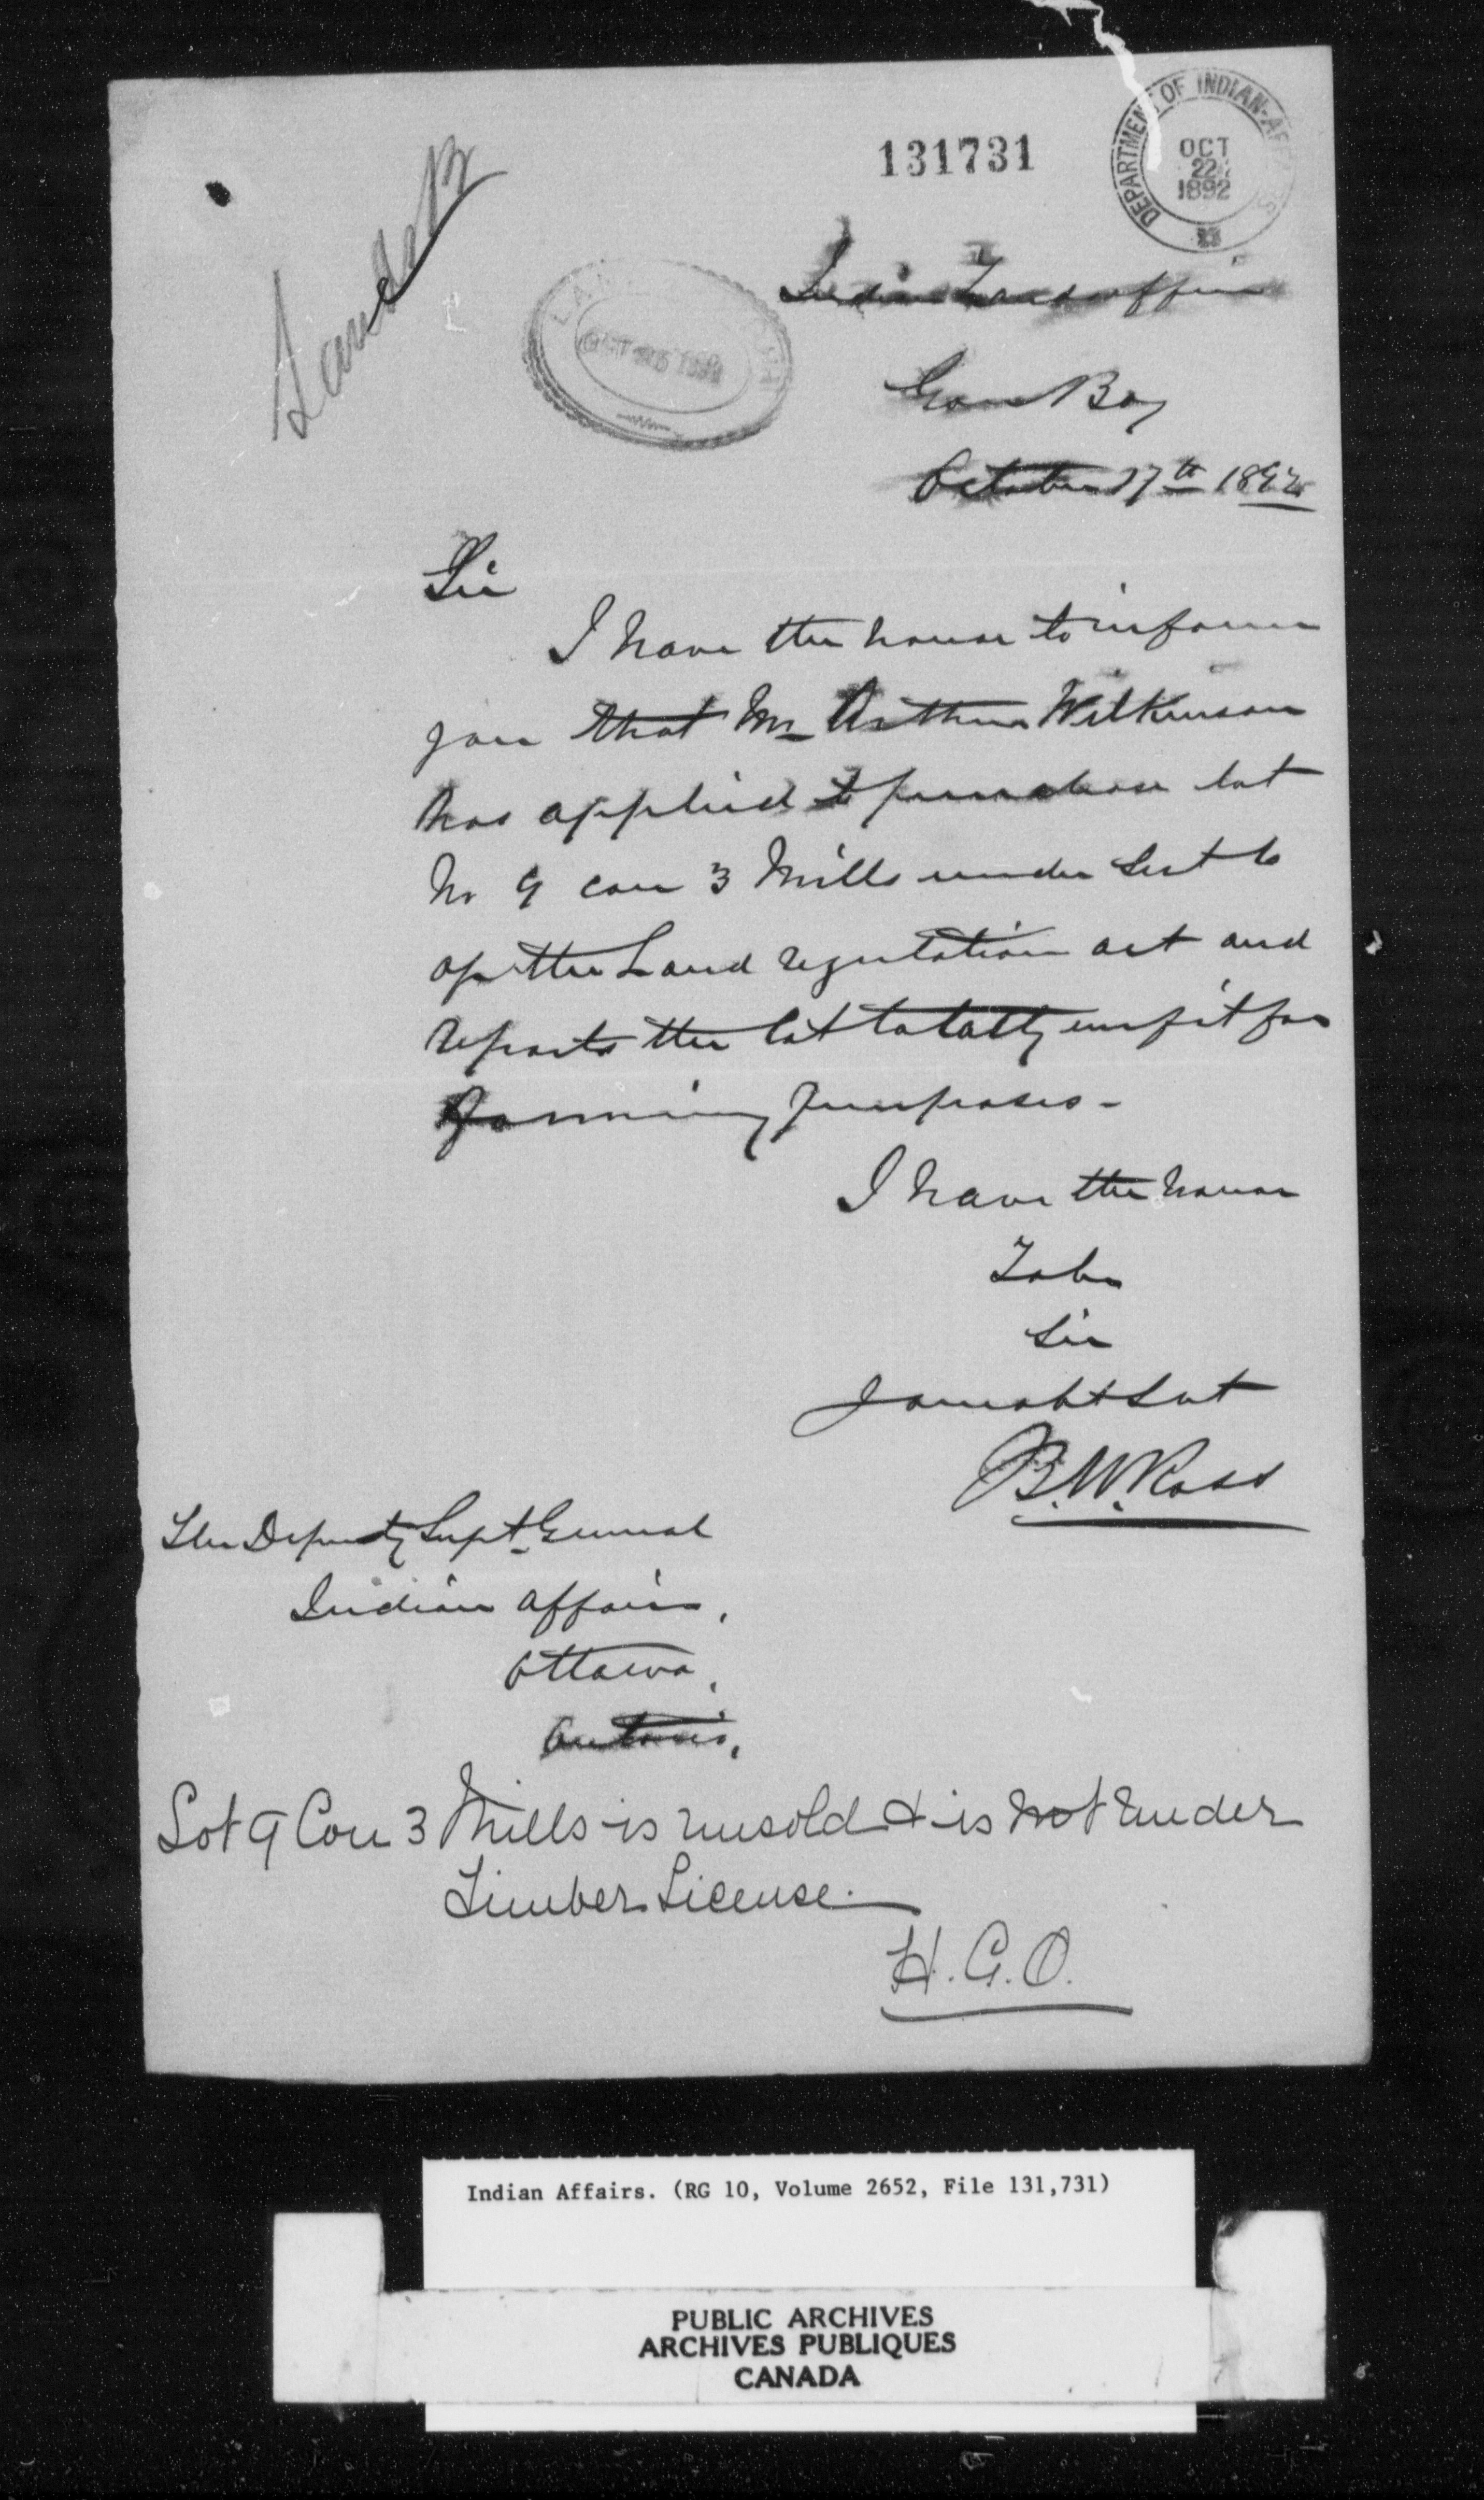 131731
DEPARTMENT OF INDIAN AFFAIRS
OCT
22
1892
Lands B
Indian Land office
Gore Bay
October 17th 1892
Sir
I have the honor to inform
you that Mr Arthur Wilkinson
has applied to purchase lot
No 9 con 3 Mills under Sect 6
of the Land regulation act and
reports the lot totally unfit for
farming purposes -
I have the honor
To be
Sir
Your obt Svt
B. W. Ross
The Deputy Supt General
Indian Affairs,
Ottawa,
Ontario,
Lot 9 Con 3 Mills is unsold & is not under
Timber License.
H. G. O.
Indian Affairs. (RG 10, Volume 2652, File 131,731)
PUBLIC ARCHIVES
ARCHIVES PUBLIQUES
CANADA